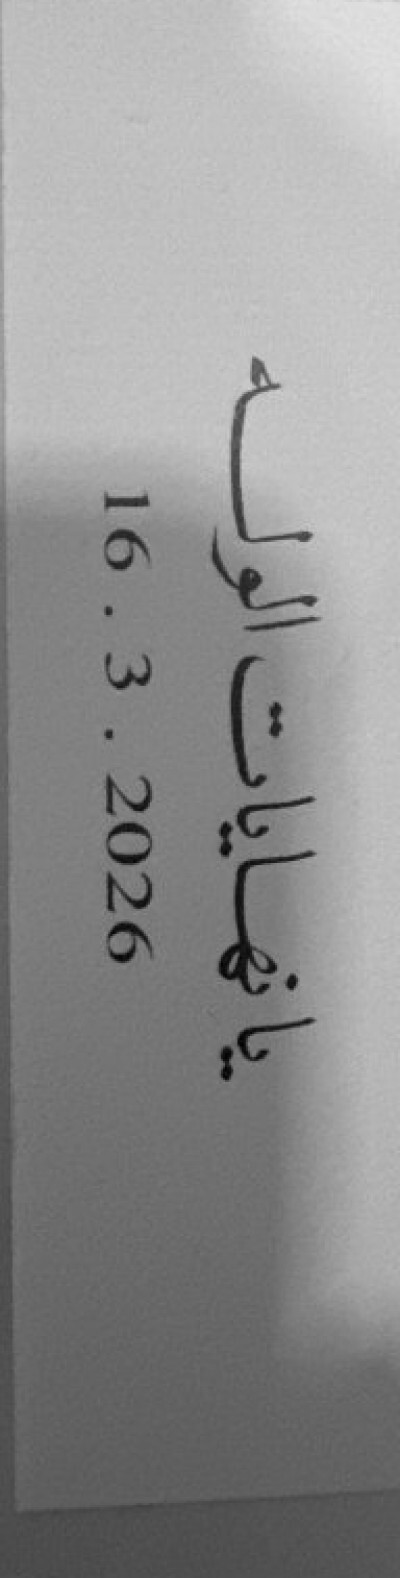 يا نهايات الوله
16.3.2026